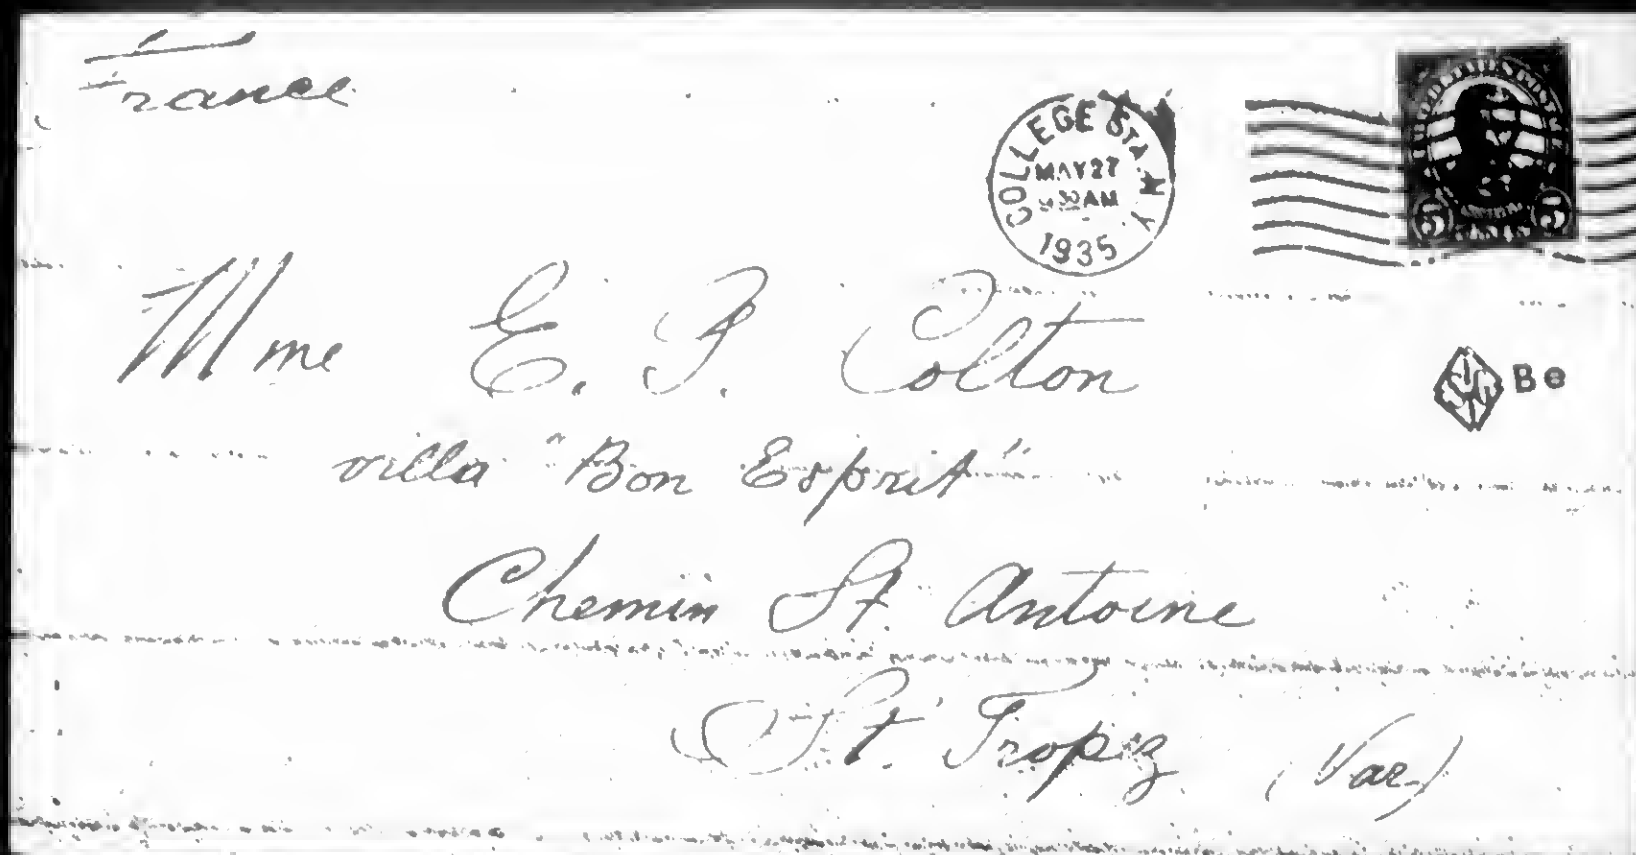 France
COLLEGE STA. N.Y.
MAY 27
9 30 AM
1935
UNITED STATES POSTAGE
5 5
CENTS
Mme E. F. Colton
villa "Bon Esprit"
Chemin St. Antoine
St. Tropez (Var)
Be